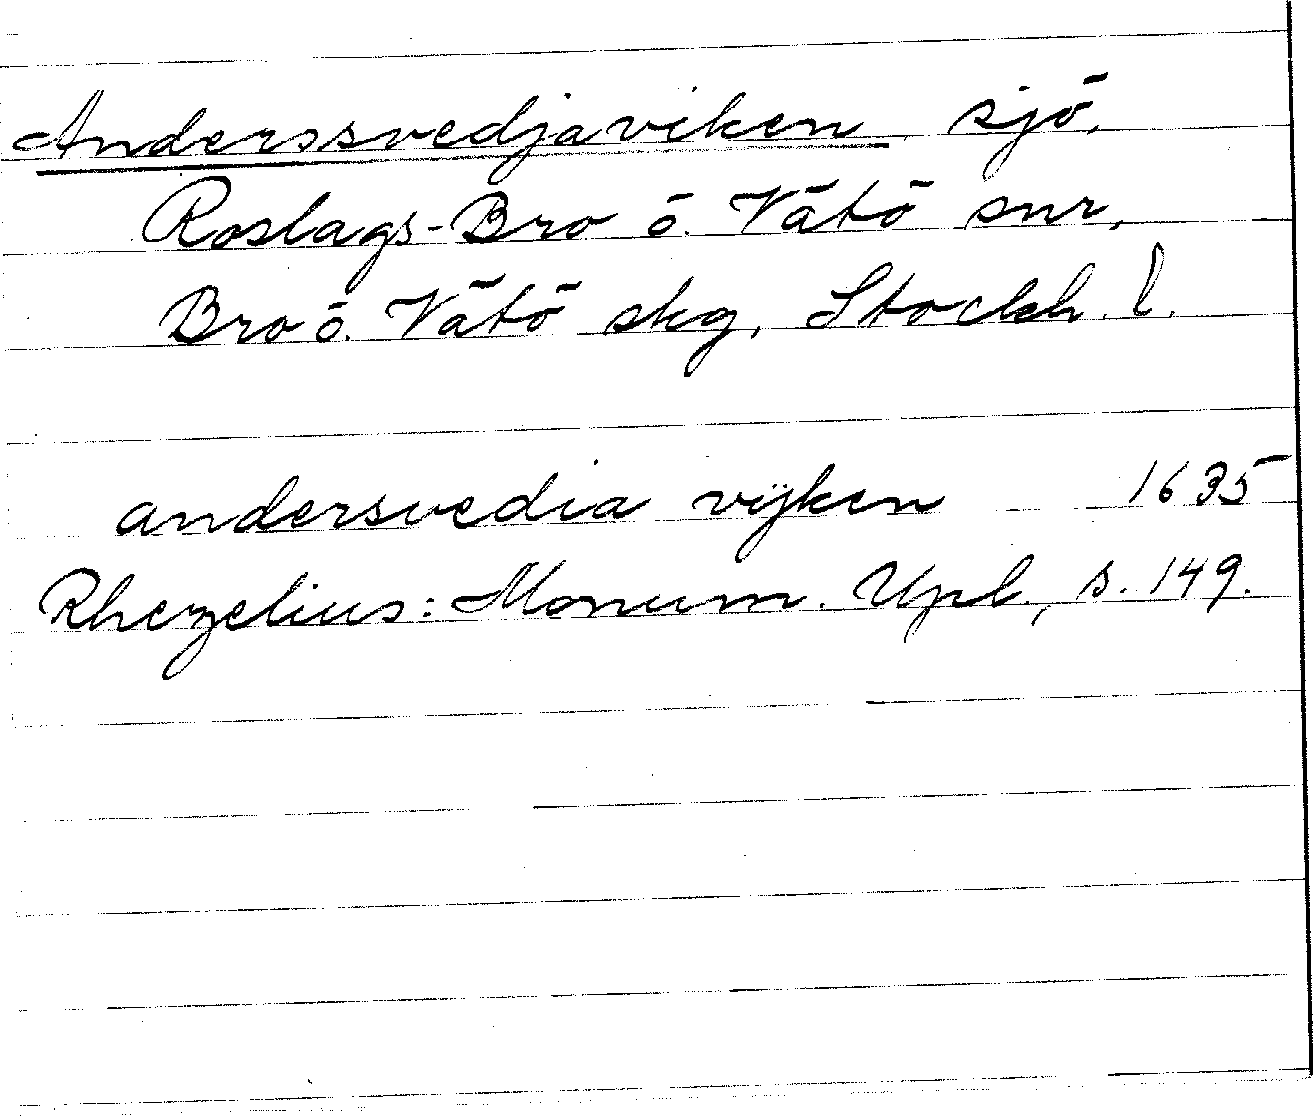 Anderssvedjaviken sjö,
Roslags-Bro o. Vätö snr,
Bro o. Vätö skg, Stockh. l.
andersvedia vijken 1635
Rhezelius: Monum. Upl., s. 149.